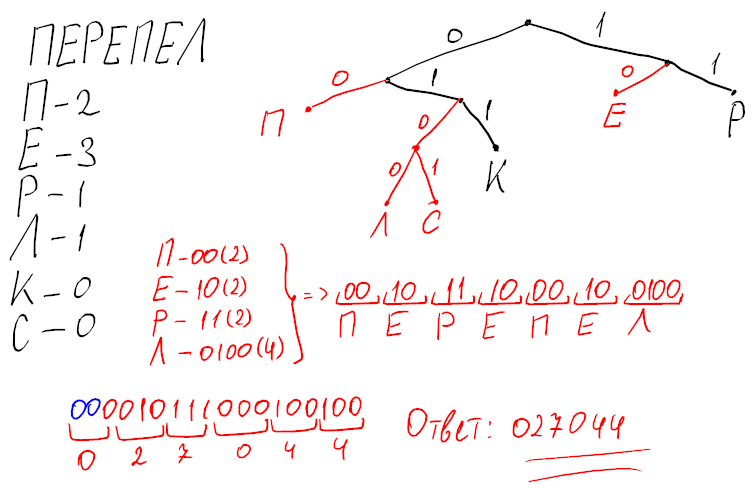 ПЕРЕПЕЛ
П-2
Е-3
Р-1
Л-1
К-0
С-0
0 1
0 1 0 1
П 0 1 Е Р
0 1 К
Л С
П-00(2)
Е-10(2)
Р-11(2)
Л-0100(4)
=> 00 10 11 10 00 10 0100
П Е Р Е П Е Л
000010111000100100
0 2 7 0 4 4
Ответ: 027044